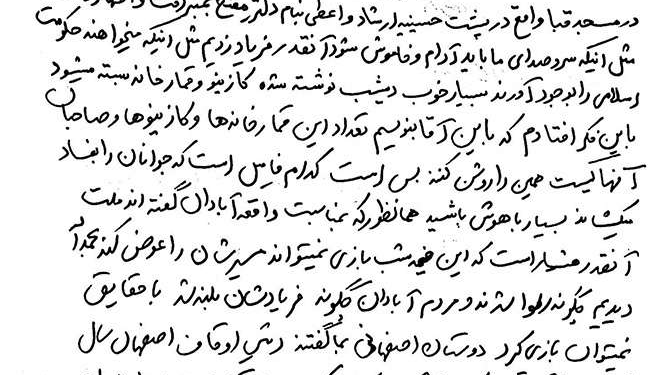 در مسجد قبا واقع در پشت حسینیه ارشاد واعظی بنام دکتر مفتح
مثل اینکه سر و صدای ما باید آرام و خاموش شود آنقدر فریاد زدیم مثل اینکه میخواهند حکومت
اسلامی را بوجود آورند بسیار خوب دیشب نوشته شده کازینو و قمارخانه بسته میشود
باین فکر افتادم که باین آقا بنویسم تعداد این قمارخانه‌ها و کازینوها و صاحبان
آنها کیست همین را روشن کند بس است کدام فامیل است که جوانان را بفساد
میکشاند بسیار باهوش باشید همانطور که بمناسبت واقعه آبادان گفته اند ملت
آنقدر هشیار است که این خیمه شب بازی نمیتواند مسیرشان را عوض کند بحمدالله
دیدیم چگونه رسوا شدند و مردم آبادان چگونه فریادشان بلند شد با حقایق
نمیتوان بازی کرد دوستان اصفهانی بما گفتند رئیس اوقاف اصفهان سال